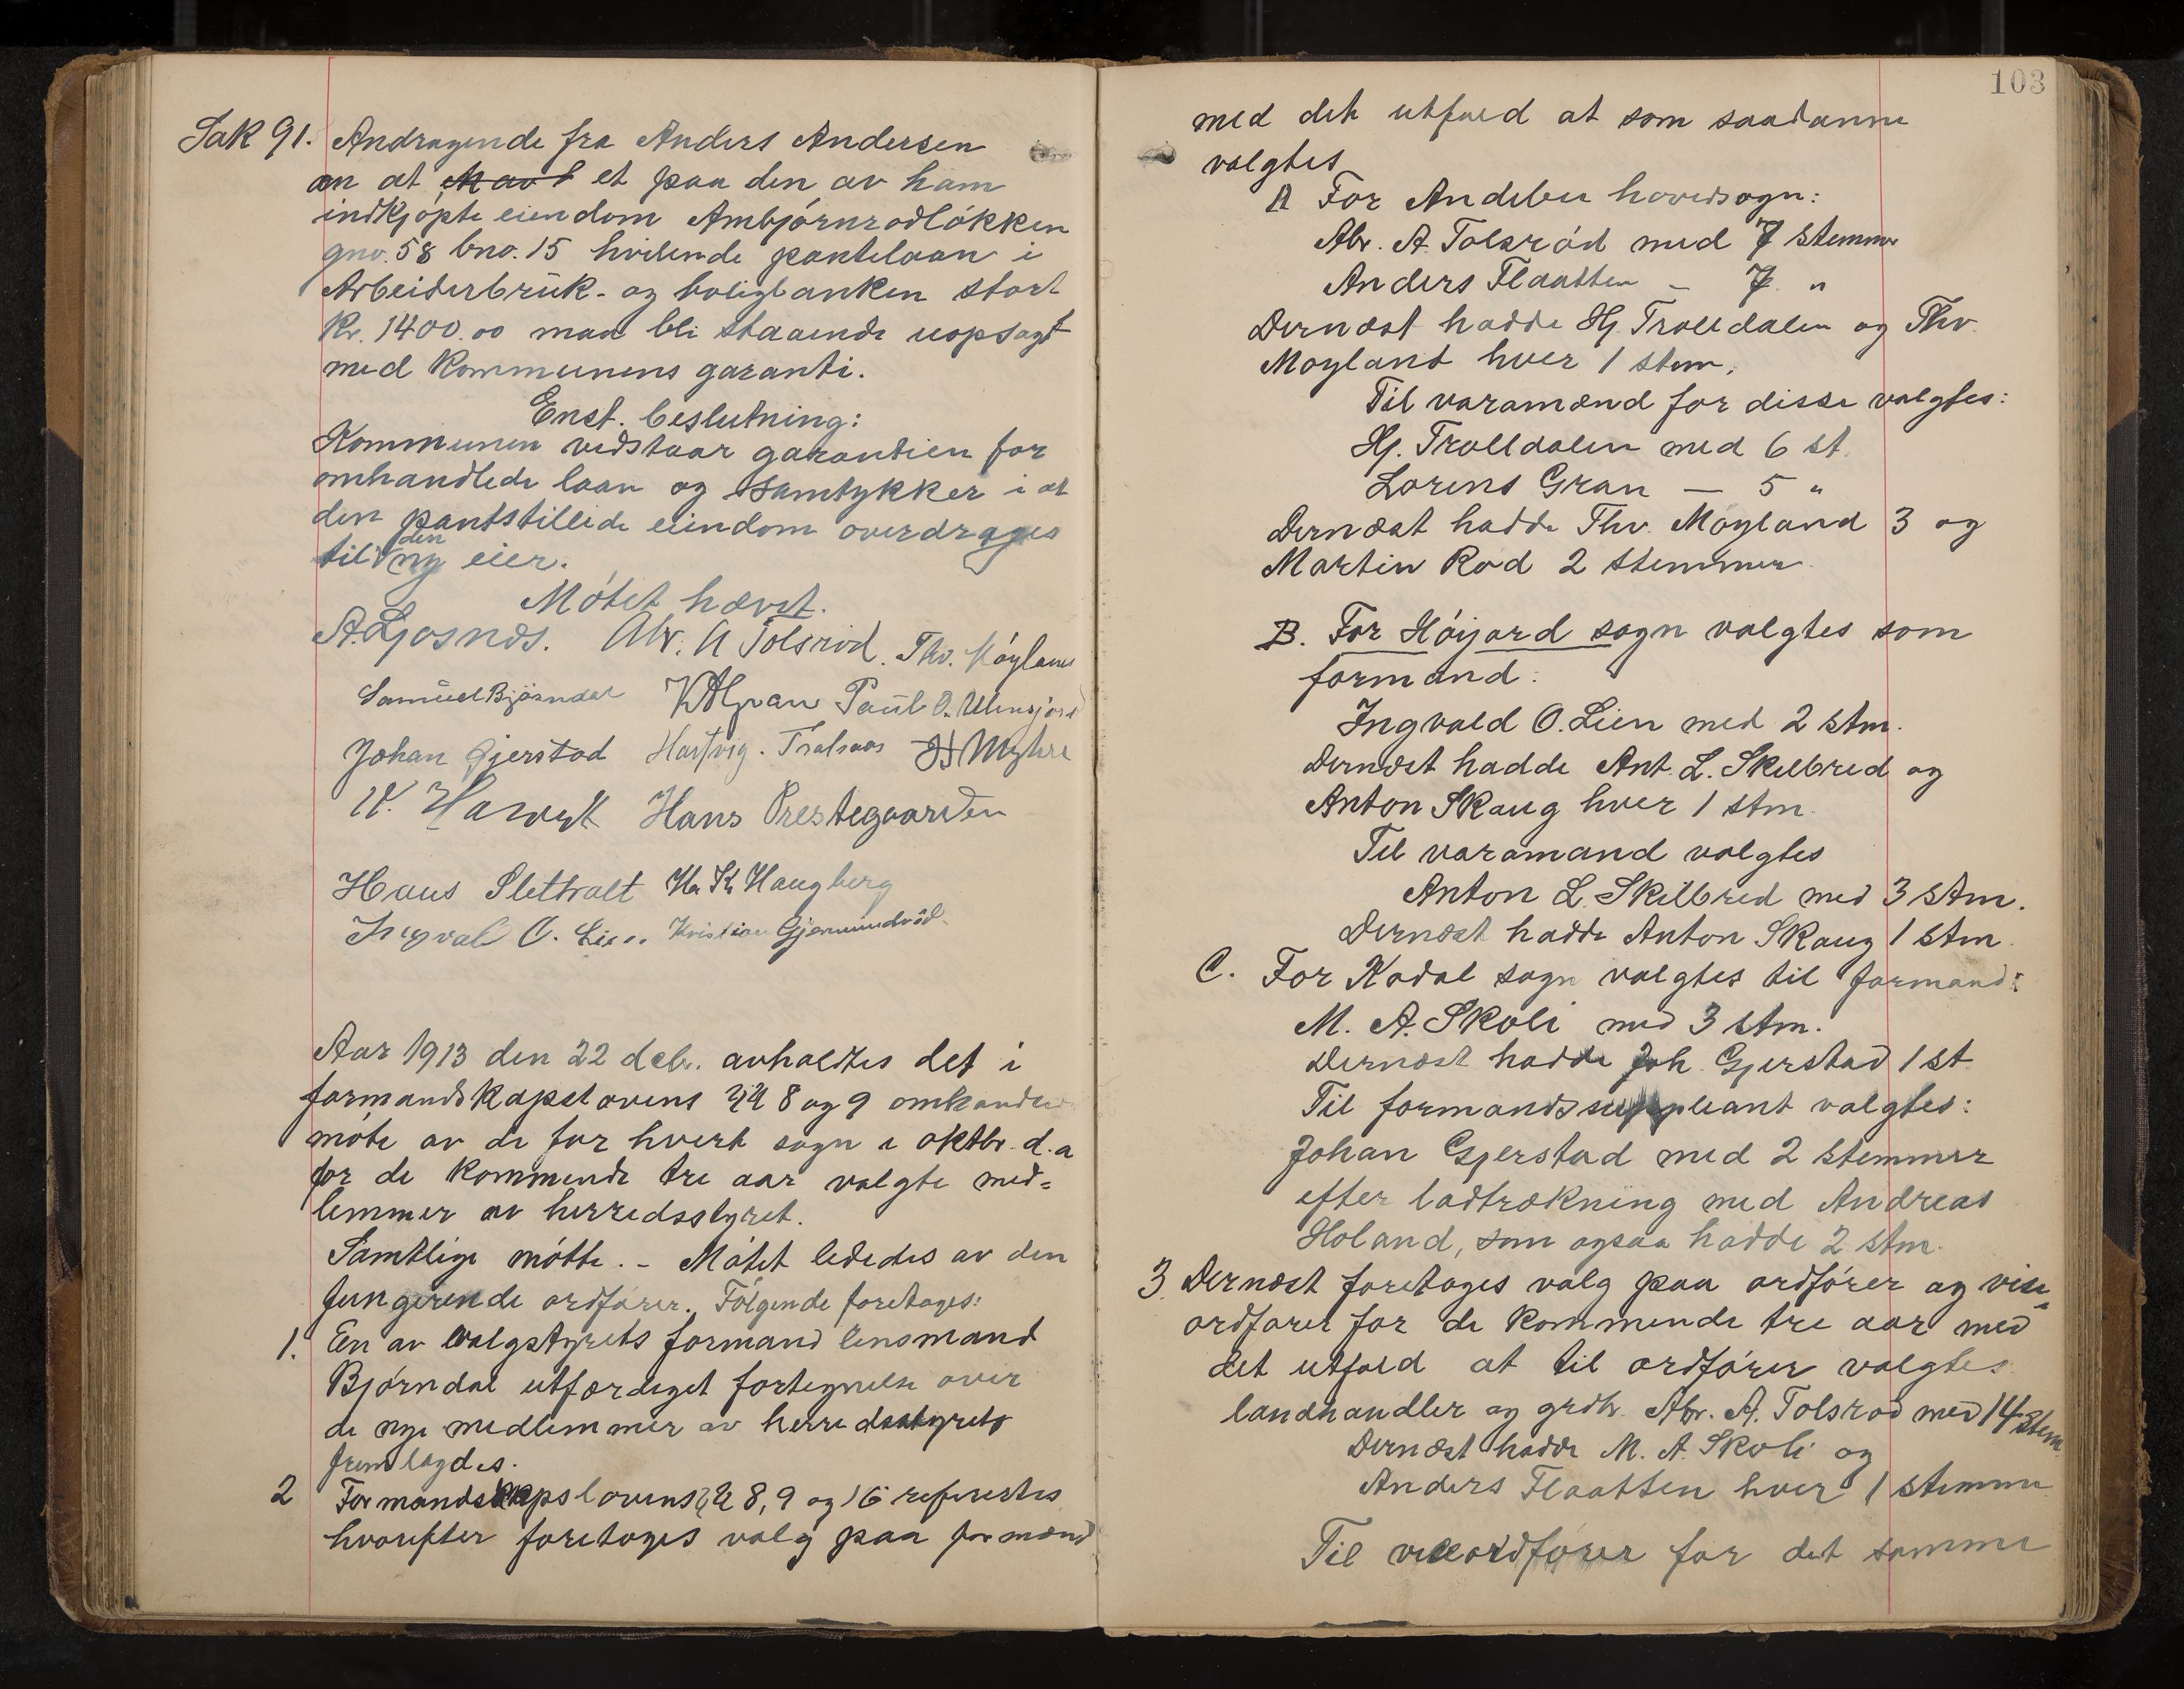 Sak 91. Andragende fra Anders Andersen
an at et paa den av ham
indkjøpte eiendom Ambjørnrødløkken
gno. 58 bno. 15 hvilende pantelaan i
Arbeiderbruk- og boligbanken stort
Kr. 1400.00 maa bli staaende uopsagt
med kommunens garanti.
Enst. beslutning:
Kommunen vedstaar garantien for
omhandlede laan og samtykker i at
den pantstillede eiendom overdrages
til den ny eier.
Møtet hævet.
A. Gjosnæs. Abr. A Tolsrød. Thv. Møyland
Samuel Bjørndal Paul O.
Johan Gjerstad Hartvig. Myhre
Hans Prestegaarden
Hans Slettvolt Haugberg
Ingval O. Lien. Kristian Gjermundrød.
Aar 1913 den 22 debr. avholdtes det i
formandskapslovens §§ 8 og 9 omhandlede
møte av de for hvert sogn i oktbr. d.a
for de kommende tre aar valgte med=
lemmer av herredsstyret.
Samtlige møtte. - Møtet lededes av den
fungerende ordfører. Følgende foretoges:
1. En av valgstyrets formand lensmand
Bjørndal utfærdiget fortegnelse over
de nye medlemmer av herredsstyrets
fremlagdes.
2 Formandskapslovens §§ 8, 9 og 16 referertes
hvorefter foretoges valg paa formænd
103
med det utfald at som saadanne
valgtes
A For Andebu hovedsogn:
Abr. A. Tolsrød med 7 stemmer
Anders Flaatten - 7 "
Dernæst hadde Hj. Trolldalen og Thv.
Møyland hver 1 stem.
Til varamænd for disse valgtes:
Hj. Trolldalen med 6 st.
Lorens Gran — 5 "
Dernæst hadde Thv. Møyland 3 og
Martin Rød 2 stemmer.
B. For Høijord sogn valgtes som
formand:
Ingvald O. Lien med 2 stm.
Dernæst hadde Ant. L. Skilbred og
Anton Skaug hver 1 stm.
Til varamand valgtes
Anton L. Skilbred med 3 stm.
Dernæst hadde Anton Skaug 1 stm.
C. For Kodal sogn valgtes til formand:
M. A. Skoli med 3 stm.
Dernæst hadde Joh. Gjerstad 1 st.
Til formandssuppleant valgtes:
Johan Gjerstad med 2 stemmer
efter lodtrækning med Andreas
Holand, som ogsaa hadde 2 stm.
3. Dernæst foretoges valg paa ordfører og vise=
ordfører for de kommende tre aar med
det utfald at til ordfører valgtes
landhandler og grdbr. Abr. A. Tolsrød med 14 stem
Dernæst hadde M. A. Skoli og
Anders Flaatten hver 1 stemme
Til viceordfører for det samme